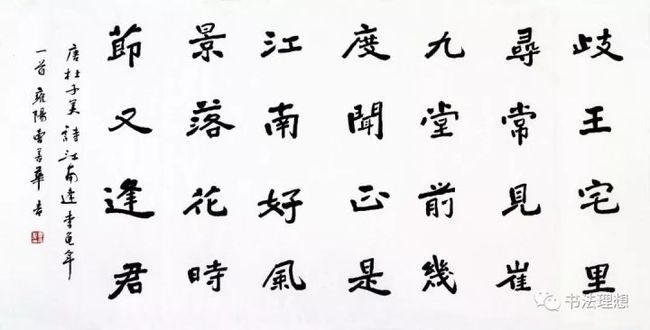 歧王宅里
尋常見崔
九堂前幾
度聞正是
江南好風
景落花時
節又逢君
唐杜子美詩江南逢李龜年
一首雍陽曹善華書
书法理想